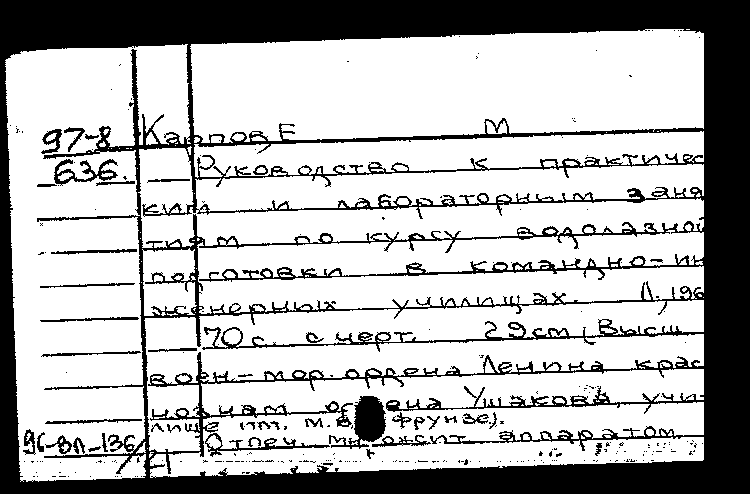 97-8 Карпов, Е М
636. Руководство к практичес
ким и лабораторным заня
тиям по курсу водолазной
подготовки в командно-ин
женерных училищах. Л., 196
70 с. с черт. 29 см (Высш.
воен.-мор. ордена Ленина крас
нознам ордена Ушакова, учи-
лище им. М.В. Фрунзе).
96-ВЛ-136/21 Отпеч. множит. аппаратом